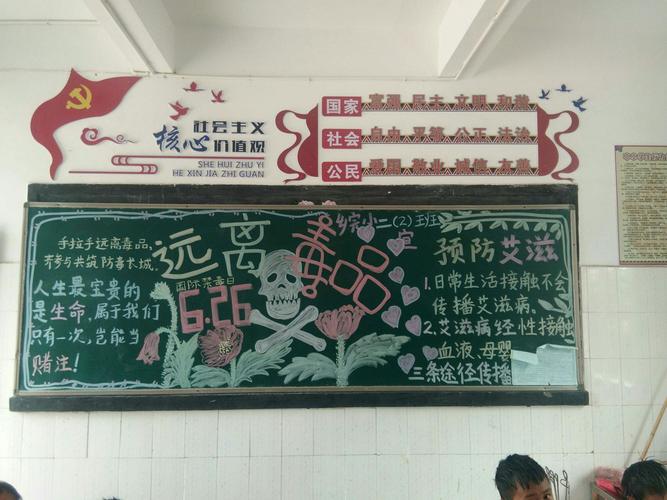 社会主义
核心价值观
SHE HUI ZHU YI
HE XIN JIA ZHI GUAN
国家 富强 民主 文明 和谐
社会 自由 平等 公正 法治
公民 爱国 敬业 诚信 友善
手拉手远离毒品,
齐参与共筑防毒长城。
人生最宝贵的
是生命,属于我们
只有一次,岂能当
赌注!
远离毒品
国际禁毒日
6.26
小二(2)班
宣
预防艾滋
1.日常生活接触不会
传播艾滋病。
2.艾滋病经性接触
血液、母婴
三条途径传播